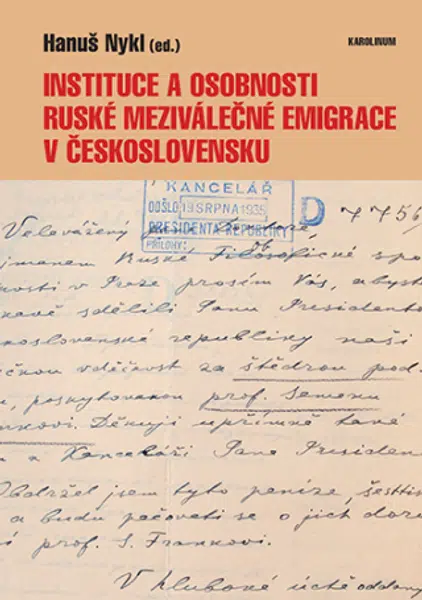 Hanuš Nykl (ed.)
KAROLINUM
INSTITUCE A OSOBNOSTI
RUSKÉ MEZIVÁLEČNÉ EMIGRACE
V ČESKOSLOVENSKU
KANCELÁŘ
DOŠLO 19 SRPNA 1935
PRESIDENTA REPUBLIKY
PŘÍLOHY:
D 7756
Velevážený
jmenem Ruské Filosofické spo
nosti v Praze prosím Vás, abyst
kavě sdělili Panu Presidento
koslovenské republiky naši
ečnou vděčnost za štědrou pod
, poskytovanou prof. Semenu
nkovi. Děkuji upřímně také
a Kanceláři Pana Presiden
Obdržel jsem tyto peníze, šestti
a budu pečovati se o jich doru
í prof. S. Frankovi.
V hluboké úctě oddaný